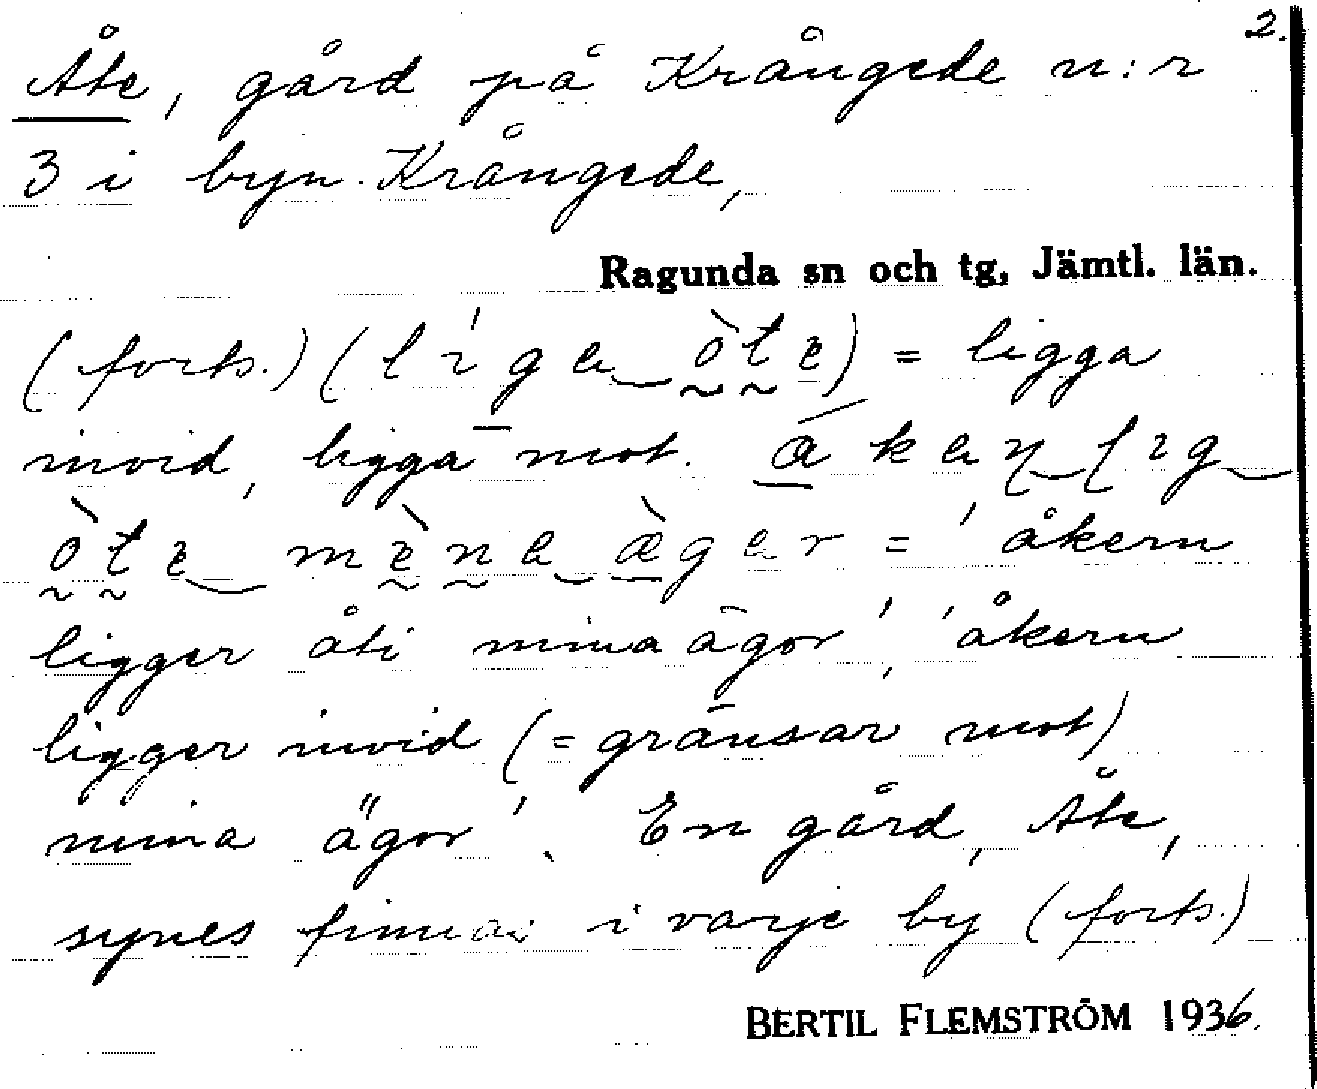 2.
Åte, gård på Krångede n:r
3 i byn Krångede,
Ragunda sn och tg, Jämtl. län.
(forts.) = ligga
invid, ligga mot.
= 'åkern
ligger åti mina ägor', 'åkern
ligger invid (= gränsar mot)
mina ägor'. En gård, Åte,
synes finnas i varje by (forts.)
BERTIL FLEMSTRÖM 1936.